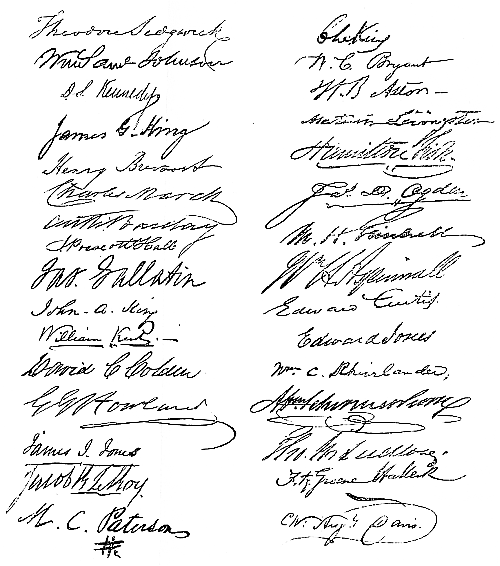 Theodore Sedgwick
Wm Saml Johnson
D. S. Kennedy
James G. King
Henry Brevoort
Charles March
J Prescott Hall
Jas. Gallatin
John A. King
William Kent
David C Colden
G G Howland
James I. Jones
Jacob R LeRoy
M. C. Paterson
Chs King
W. C. Bryant
W. B Astor
Hamilton Fish
Jas. D. Ogden
M. H. Grinnell
Wm H Aspinwall
Edward Curtis
Edward Jones
Wm C. Rhinelander
Abm Schermerhorn
Tho. W. Ludlow
Davis